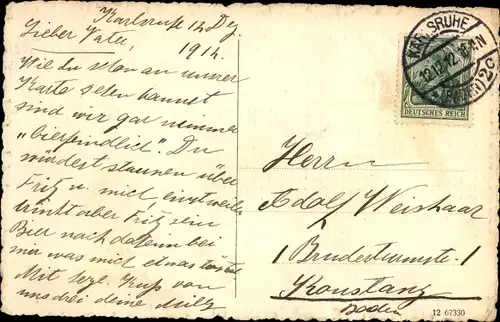 Karlsruhe 12. Dez.
1912.
Lieber Vater,
Wie du schon an unsrer
Karte sehen kannst
sind wir gar nimmer
„bierfeindlich". Du
würdest staunen über
Fritz u. mich,
trinkt aber Fritz sein
Bier nach daheim bei
mir was mich etwas tröstet
Mit herzl. Gruß von
uns drei deine Milly
KARLSRUHE
12.12.12
(BADEN) 2C
DEUTSCHES REICH
Herrn
Adolf Weishaar
Konstanz
Baden
12 67330